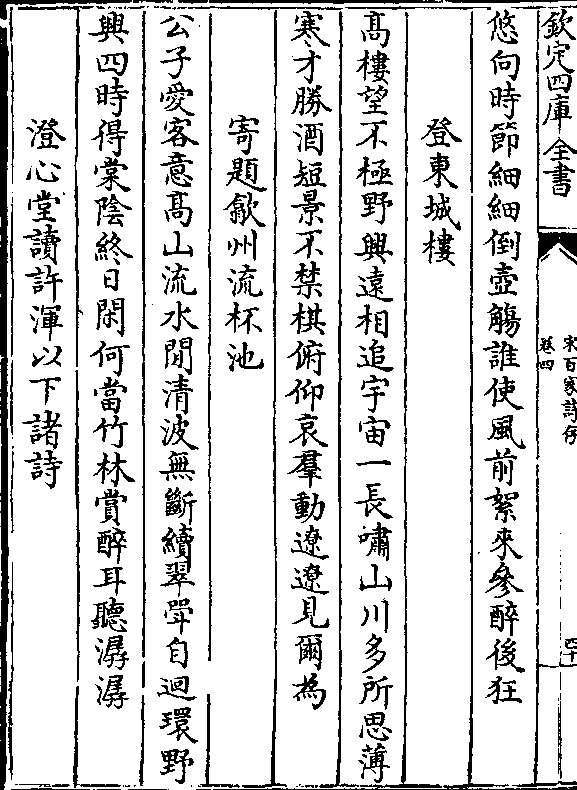 欽定四庫全書
宋百家詩存
卷四
四十
悠向時節細細倒壺觴誰使風前絮來參醉後狂
登東城樓
髙樓望不極野興遠相追宇宙一長嘯山川多所思薄
寒才勝酒短景不禁棋俯仰哀羣動遼遼見爾為
寄題歙州流杯池
公子愛客意髙山流水閒清波無斷續翠斝自迴環野
興四時得棠陰終日閑何當竹林賞醉耳聽潺潺
澄心堂讀許渾以下諸詩